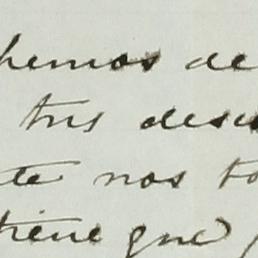 hemos de
tus des
te nos to
tiene que